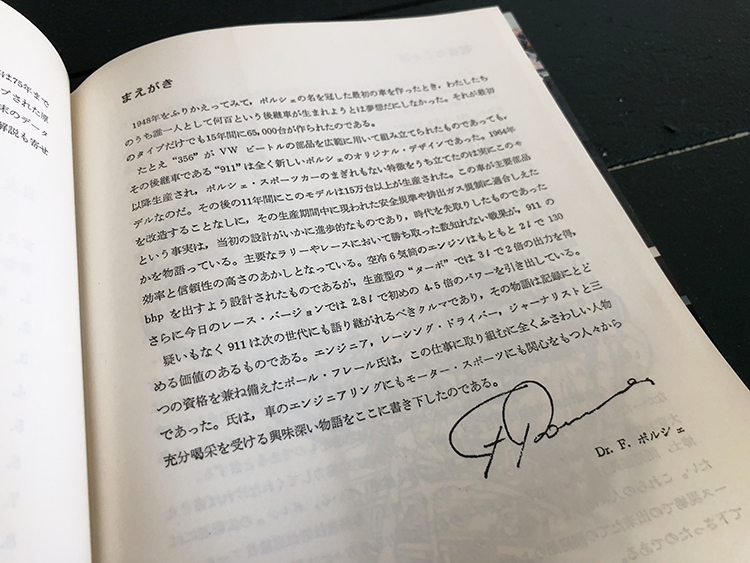 は75年まで
プされた原
末のデータ
解説も寄せ
まえがき
1948年をふりかえってみて，ポルシェの名を冠した最初の車を作ったとき，わたしたち
のうち誰一人として何百という後継車が生まれようとは夢想だにしなかった。それが最初
のタイプだけでも15年間に65,000台が作られたのである。
たとえ“356”が VW ビートルの部品を広範に用いて組み立てられたものであっても，
その後継車である“911”は全く新しいポルシェのオリジナル・デザインであった。1964年
以降生産され，ポルシェ・スポーツカーのまぎれもない特徴をうち立てたのは実にこのモ
デルなのだ。その後の11年間にこのモデルは15万台以上が生産された。この車が主要部品
を改造することなしに，その生産期間中に現われた安全規準や排出ガス規制に適合しえた
という事実は，当初の設計がいかに進歩的なものであり，時代を先取りしたものであった
かを物語っている。主要なラリーやレースにおいて勝ち取った数知れない戦果が，911 の
効率と信頼性の高さのあかしとなっている。空冷6気筒のエンジンはもともと 2ℓ で 130
bhp を出すよう設計されたものであるが，生産型の“ターボ”では 3ℓ で2倍の出力を得，
さらに今日のレース・バージョンでは 2.8ℓ で初めの 4.5 倍のパワーを引き出している。
疑いもなく911は次の世代にも語り継がれるべきクルマであり，その物語は記録にとど
める価値のあるものである。エンジニア，レーシング・ドライバー，ジャーナリストと三
つの資格を兼ね備えたポール・フレール氏は，この仕事に取り組むに全くふさわしい人物
であった。氏は，車のエンジニアリングにもモーター・スポーツにも関心をもつ人々から
充分喝采を受ける興味深い物語をここに書き下したのである。
Dr. F. ポルシェ